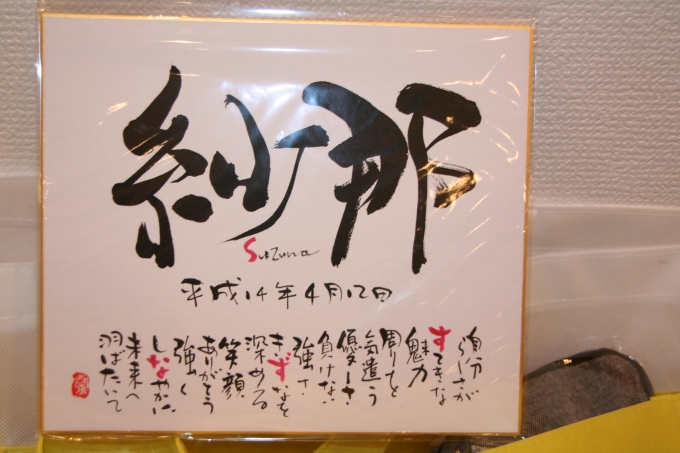 紗那
Suzuna
平成14年4月12日
自分
らしさが
すてきな
魅力
周りを
気遣う
優しさ
負けない
強さ
きずなを
深める
笑顔
ありがとう
強く
しなやかに
未来へ
羽ばたいて